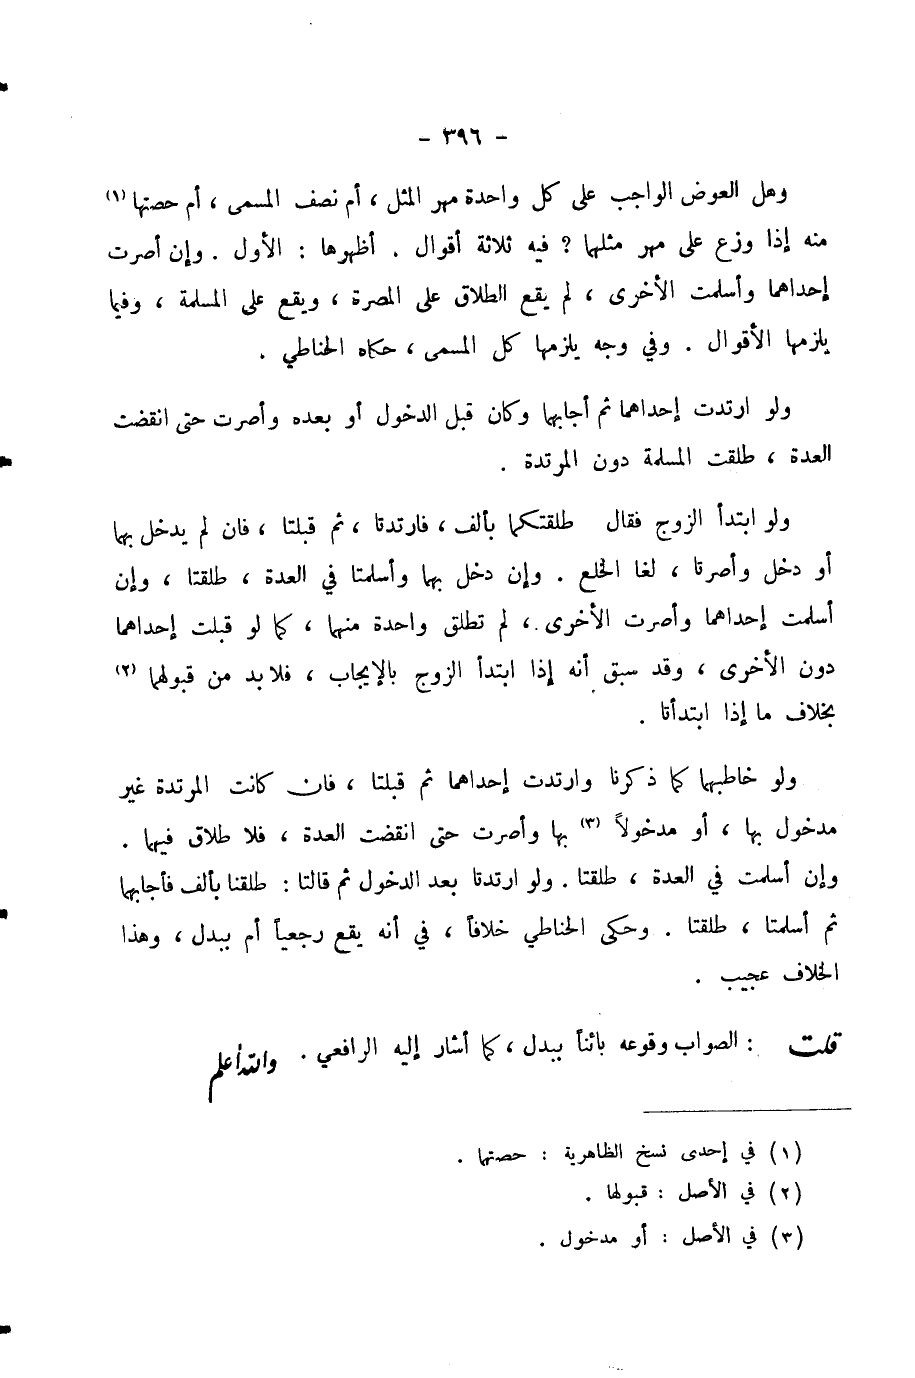 - ٣٩٦ -
وهل العوض الواجب على كل واحدة مهر المثل ، أم نصف المسمى ، أم حصتها (١)
منه إذا وزع على مهر مثلها ? فيه ثلاثة أقوال . أظهرها : الأول . وإن أصرت
إحداهما وأسلمت الأخرى ، لم يقع الطلاق على المصرة ، ويقع على المسلمة ، وفيما
يلزمها الأقوال . وفي وجه يلزمها كل المسمى ، حكاه الحناطي .
ولو ارتدت إحداهما ثم أجابهما وكان قبل الدخول أو بعده وأصرت حتى انقضت
العدة ، طلقت المسلمة دون المرتدة .
ولو ابتدأ الزوج فقال طلقتكما بألف ، فارتدتا ، ثم قبلتا ، فان لم يدخل بهما
أو دخل وأصرتا ، لغا الخلع . وإن دخل بهما وأسلمتا في العدة ، طلقتا ، وإن
أسلمت إحداهما وأصرت الأخرى ، لم تطلق واحدة منهما ، كما لو قبلت إحداهما
دون الأخرى ، وقد سبق أنه إذا ابتدأ الزوج بالإيجاب ، فلا بد من قبولهما (٢)
بخلاف ما إذا ابتدأتا .
ولو خاطبهما كما ذكرنا وارتدت إحداهما ثم قبلتا ، فان كانت المرتدة غير
مدخول بها ، أو مدخولاً (٣) بها وأصرت حتى انقضت العدة ، فلا طلاق فيهما .
وإن أسلمت في العدة ، طلقتا . ولو ارتدتا بعد الدخول ثم قالتا : طلقنا بألف فأجابهما
ثم أسلمتا ، طلقتا . وحكى الحناطي خلافاً ، في أنه يقع رجعياً أم ببدل ، وهذا
الخلاف عجيب .
قلت : الصواب وقوعه بائناً ببدل ، كما أشار إليه الرافعي . والله أعلم
(١) في إحدى نسخ الظاهرية : حصتهما .
(٢) في الأصل : قبولها .
(٣) في الأصل : أو مدخول .